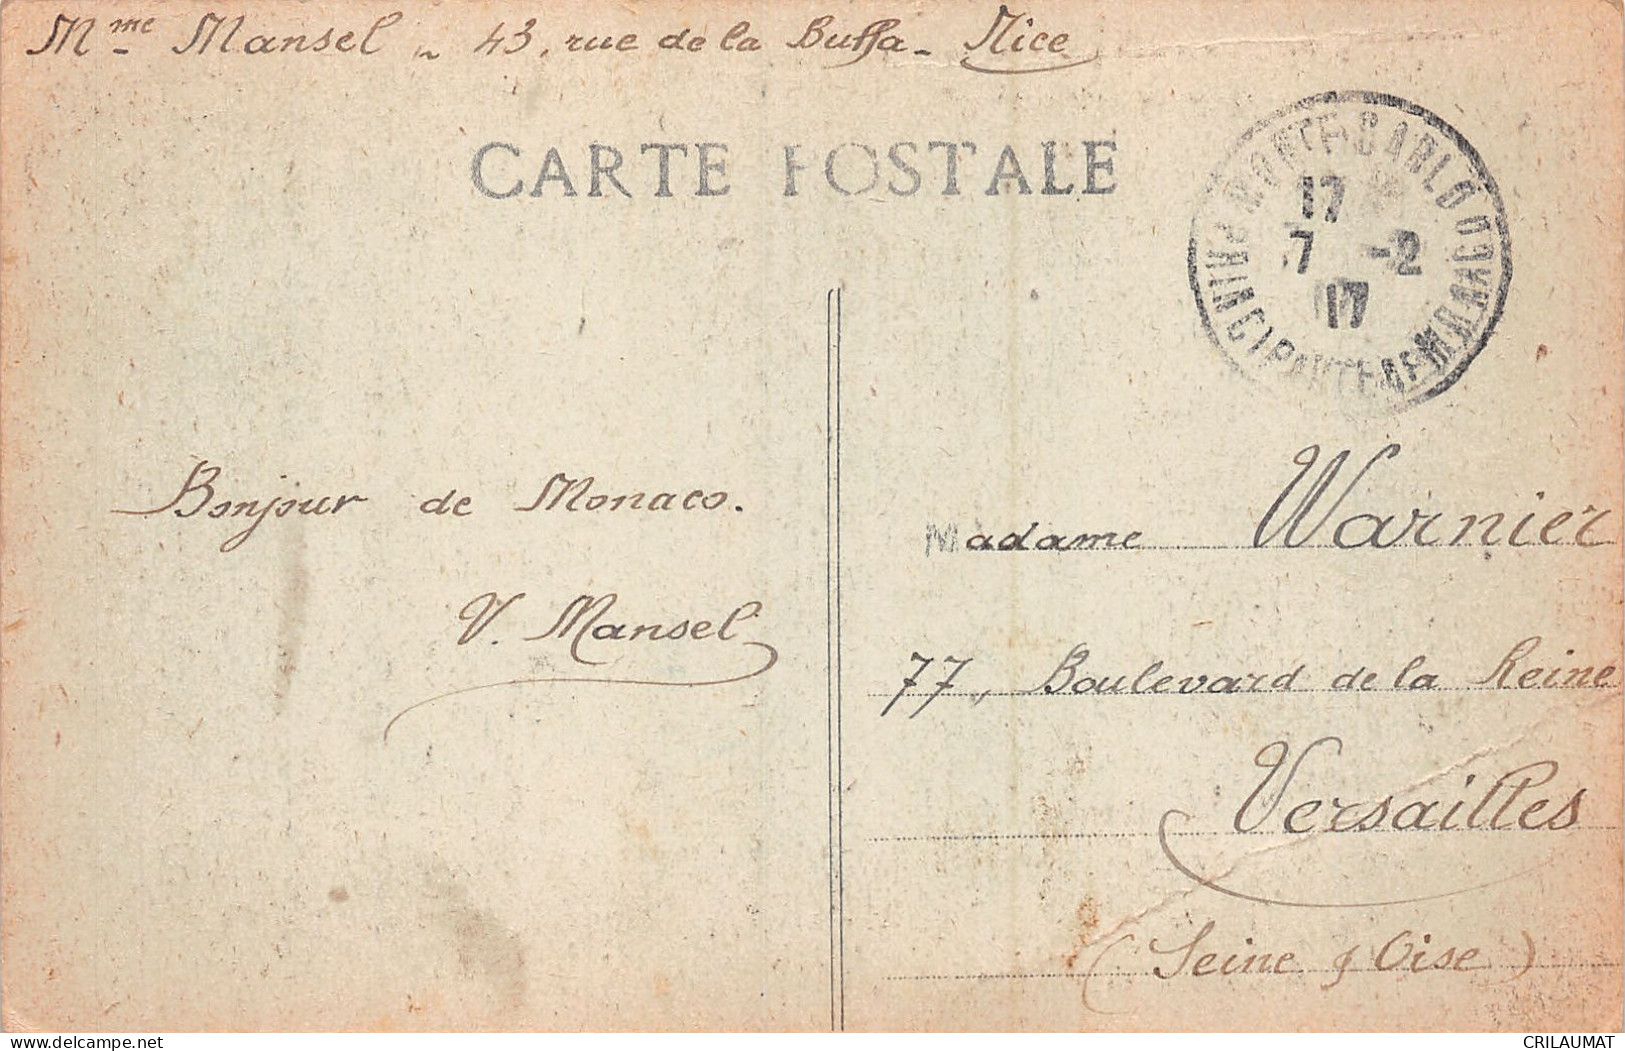 Mme Mansel - 43, rue de la Buffa - Nice
CARTE POSTALE
MONTE-CARLO
17
7 -2
17
PRINCIPAUTÉ DE MONACO
Bonjour de Monaco.
V. Mansel
Madame Warnier
77, Boulevard de la Reine
Versailles
(Seine & Oise)
delcampe.net
CRILAUMAT